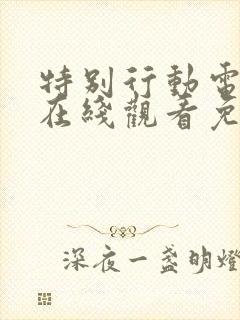 特别行動電
在綫觀看免
深夜一盏明燈